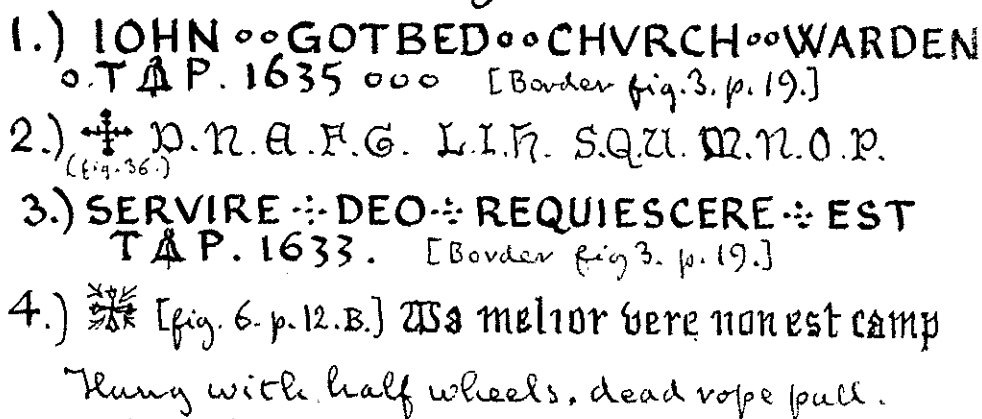 1.) IOHN °° GOTBED °° CHVRCH °° WARDEN
o. T P. 1635 ooo [Border fig. 3. p. 19.]
2.) P. N. A. F. G. L. I. H. S. Q. U. M. N. O. P.
(fig. 36.)
3.) SERVIRE ·:· DEO ·:· REQUIESCERE ·:· EST
T P. 1633. [Border fig 3. p. 19.]
4.) [fig. 6. p. 12. B.] melior vere non est camp
Hung with half wheels, dead rope pull.